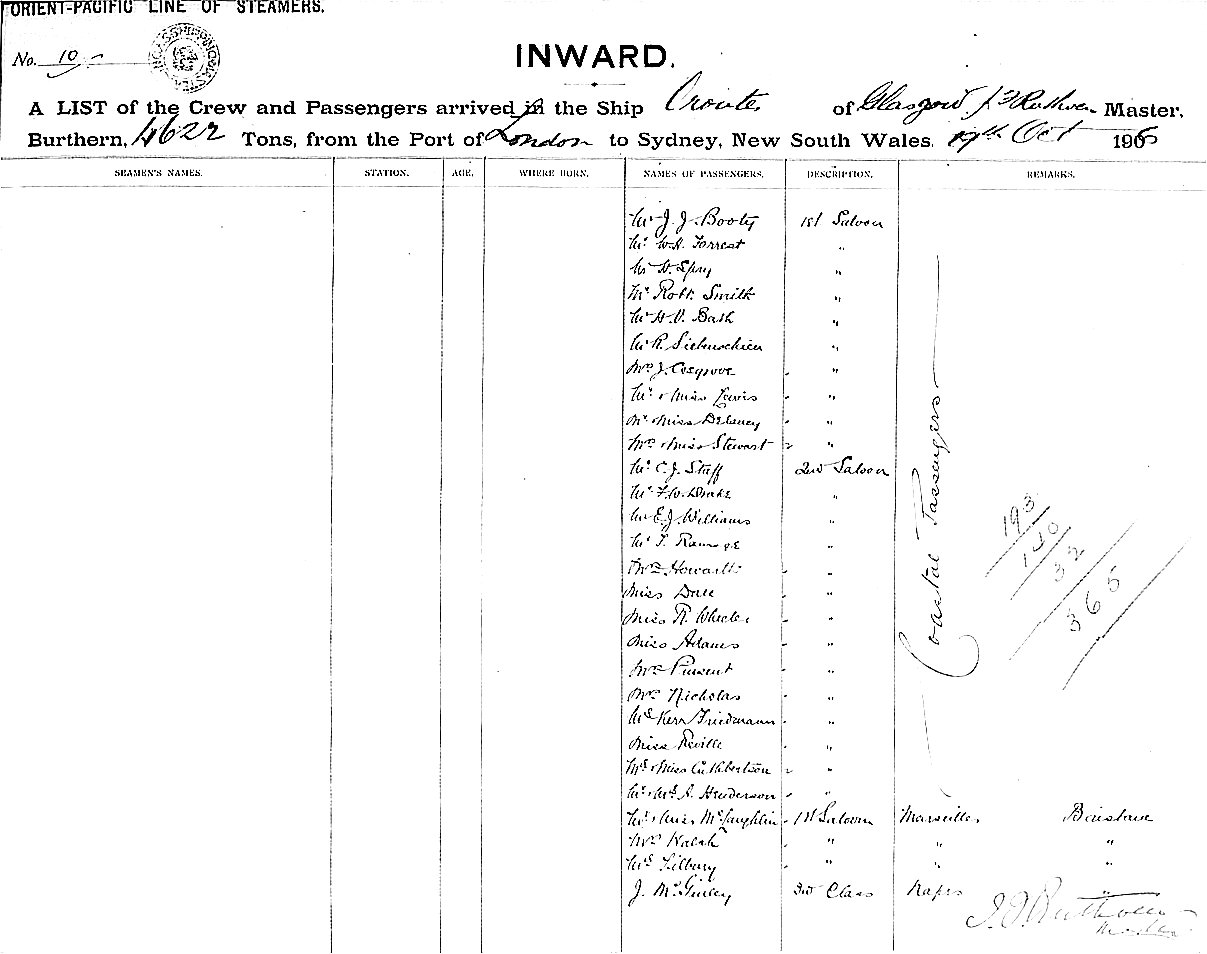 ORIENT-PACIFIC LINE OF STEAMERS.
No. 10
INWARD.
A LIST of the Crew and Passengers arrived in the Ship Orontes of Glasgow J. F. Ruthven Master,
Burthern, 4622 Tons, from the Port of London to Sydney, New South Wales, 19th Oct 1906
SEAMEN'S NAMES. STATION. AGE. WHERE BORN. NAMES OF PASSENGERS. DESCRIPTION. REMARKS.
Mr J. J. Booty 1st Saloon
Mr W.H. Forrest "
Mr H. Spry "
Mr Robt. Smith "
Mr H.V. Bath "
Mr R. "
Mrs J. Cosgrove "
Mr & Miss Lewis "
Mr & Miss Delaney "
Mrs & Miss Stewart "
Mr C.J. Staff 2nd Saloon
Mr F.W. Drake "
Mr E.J. Williams "
Mr T. Ramage "
Mrs Howarth "
Miss Dale "
Miss R. Wheeler "
Miss Adams "
Mrs Pinsent "
Mrs Nicholas "
Mrs Kerr Friedmann "
Miss Reville "
Mrs & Miss Cuthbertson "
Mr & Mrs A. Henderson "
Coastal Passengers
193
140
32
365
Mr & Miss McLaughlin 1st Saloon Marseilles Brisbane
Mrs Walsh " " "
Mrs Tilbury " " "
J. McGinley 3rd Class Naples "
J. F. Ruthven
Master